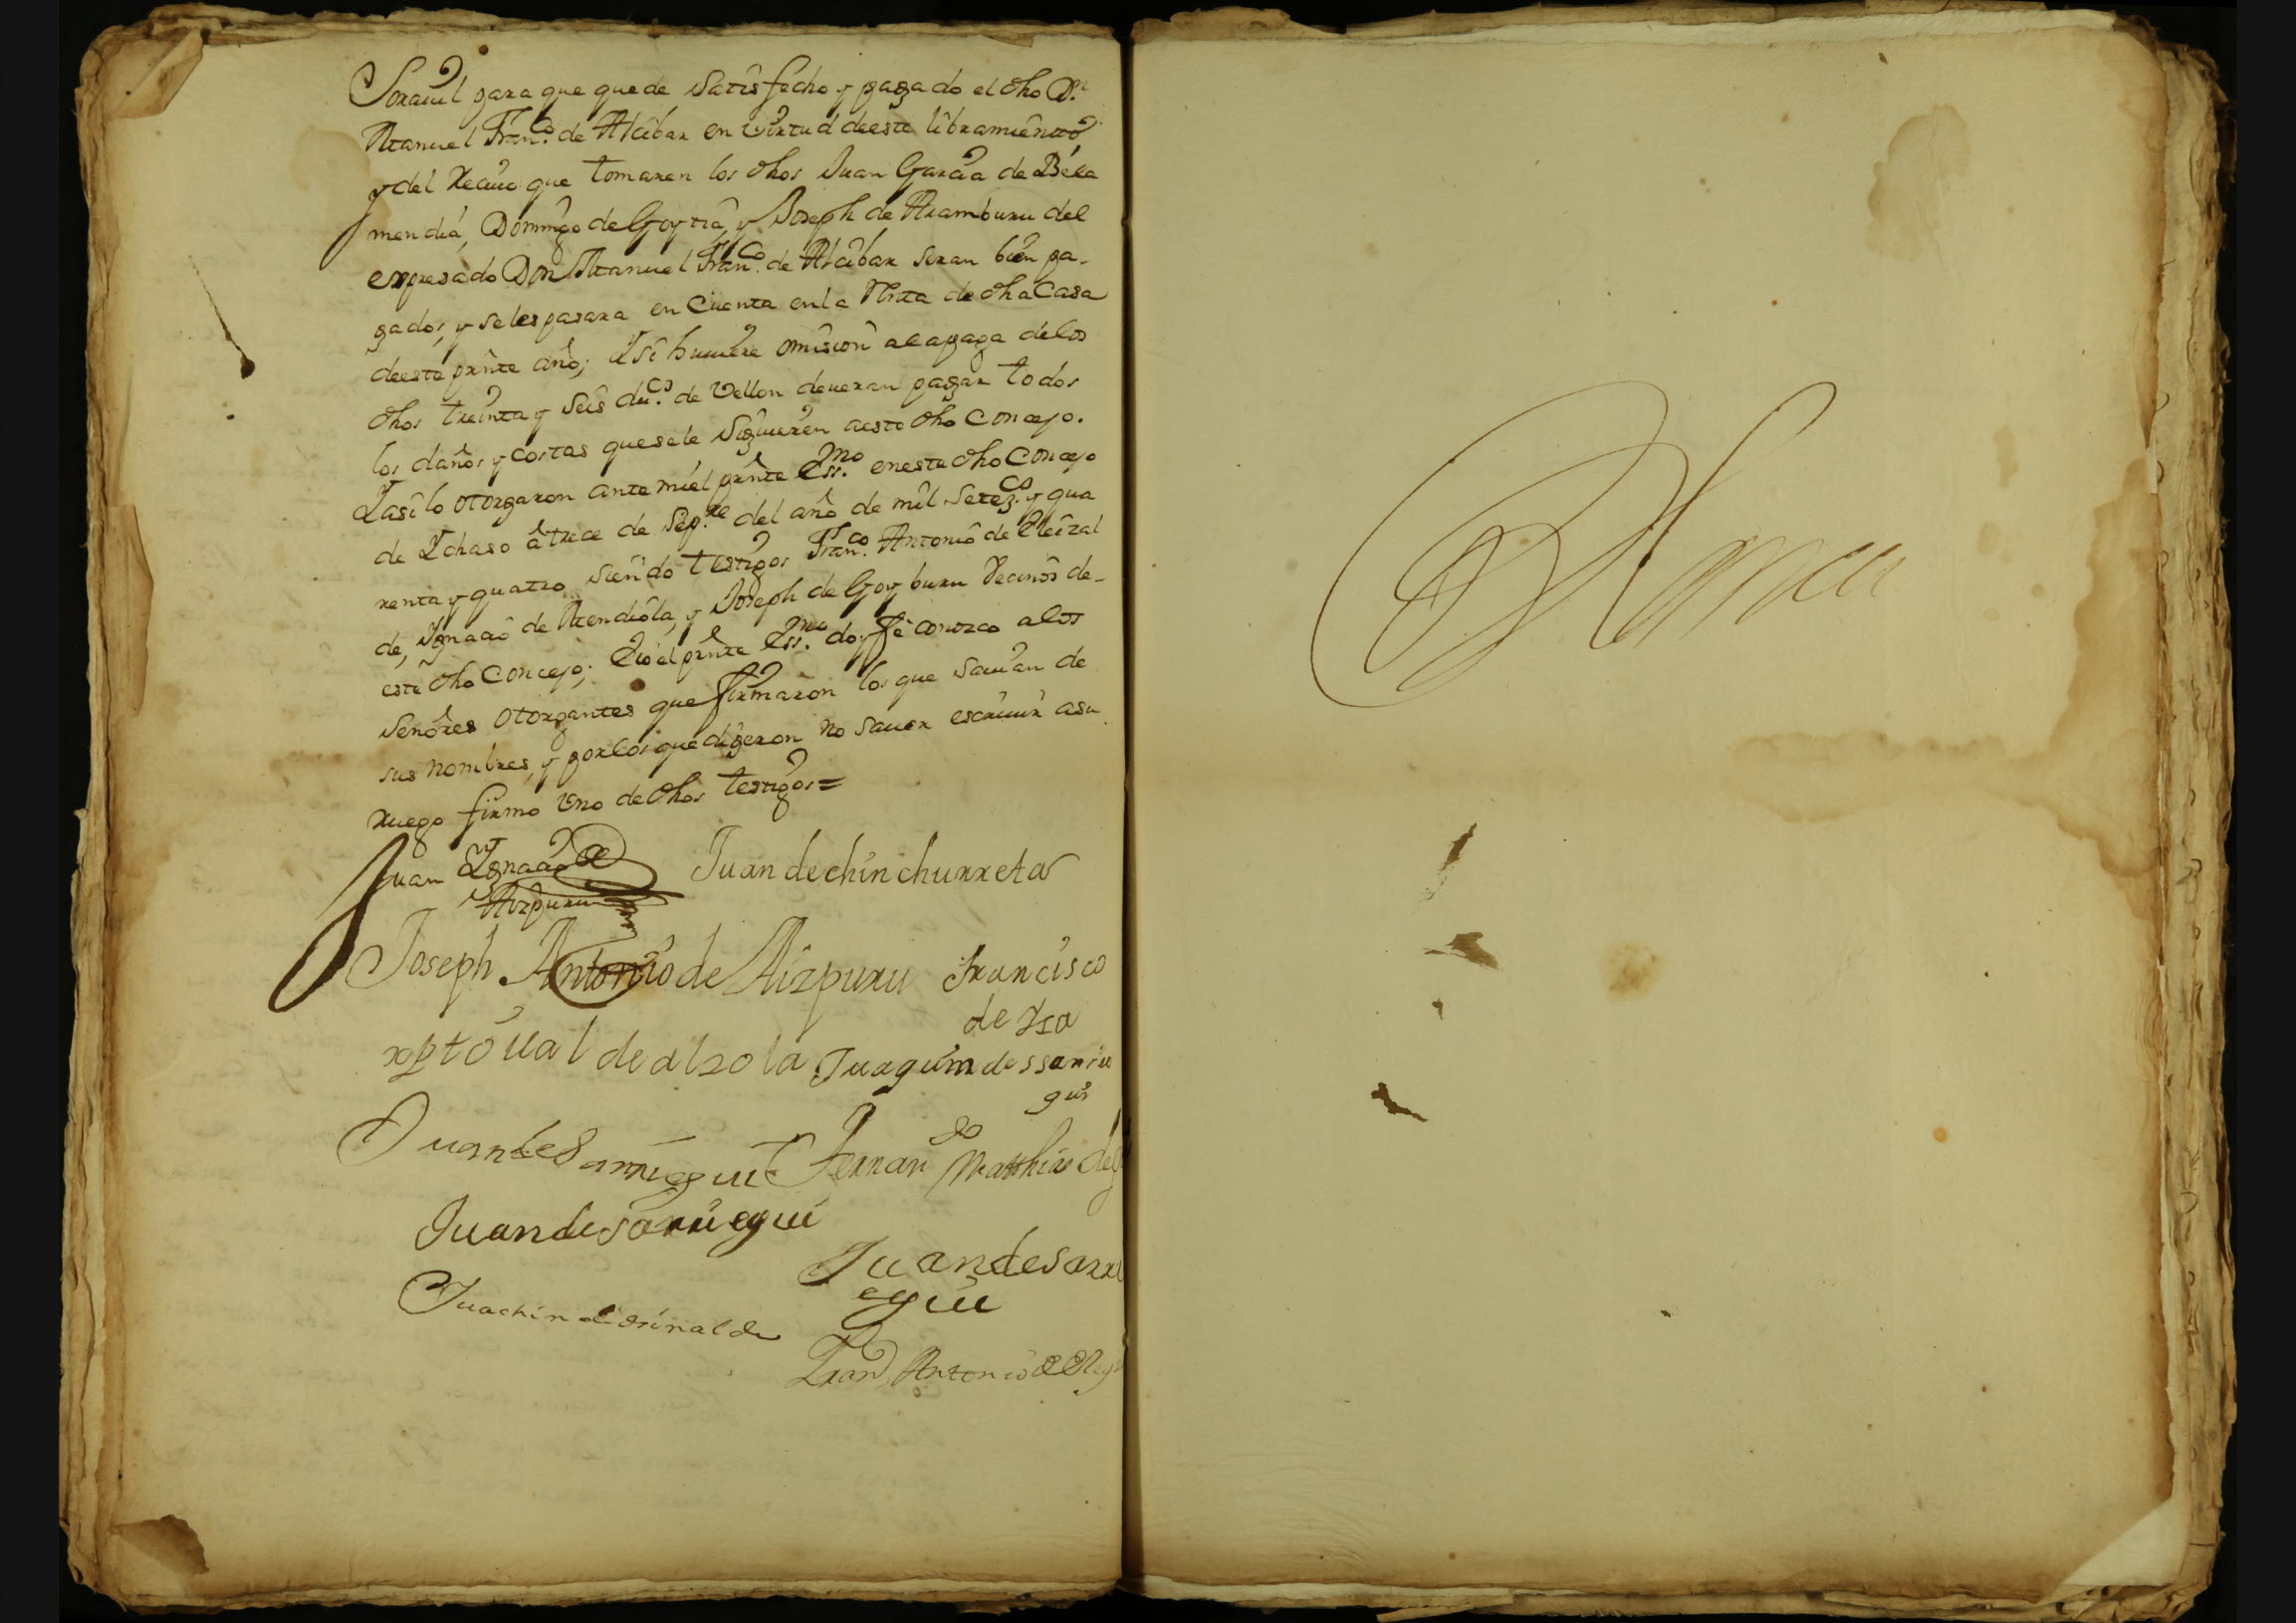 Soraiul para que quede Satisfecho y pagado el dho D.n
Manuel Fran.co de Alcibar en virtud deeste libramiento,
y del Reciuo que tomaren los dhos Juan Garcia de Bere
mendia, Domingo de Goytia, y Joseph de Aramburu del
expresado Don Manuel Fran.co de Alcibar seran bien pa-
gados, y seles pasara en Cuenta enla de dha Casa
deeste prnte año; Y Si huuiere omision alapaga delos
dhos treinta y Seis du.cs de Vellon deueran pagar todos
los daños y costas quesele Siguieren aeste dho Concejo.
Yasi lo otorgaron ante mi el prnte Ess.no eneste dho Concejo
de Ychaso â trece de Sep.re del año de mil Setez.cs y qua
renta y quatro siendo testigos Fran.co Antonio de Eleizal
de, Ygnacio de Mendiola, y Joseph de Goyburu Vecinos de-
este dho Concejo; Eio el prnte Ess.no doy fê conozco alos
Señores Otorgantes que firmaron los que Sauian de
sus nombres, y porlos que digeron no Sauer escriuir asu
ruego firmo Vno de dhos testigos=
Juan Ygnacio de
Aizpuru
Juan dechinchurreta
Joseph Antonio de Aizpuru
Francisco
de Ysa
xptoual de alzola
Juaquin de ssarrie
gui
Juan de Sarriegui
Fernan.do Matthias de
Juan de sarriegui
Juan de Sarri
egui
Juachin de
Fran.co Antonio de